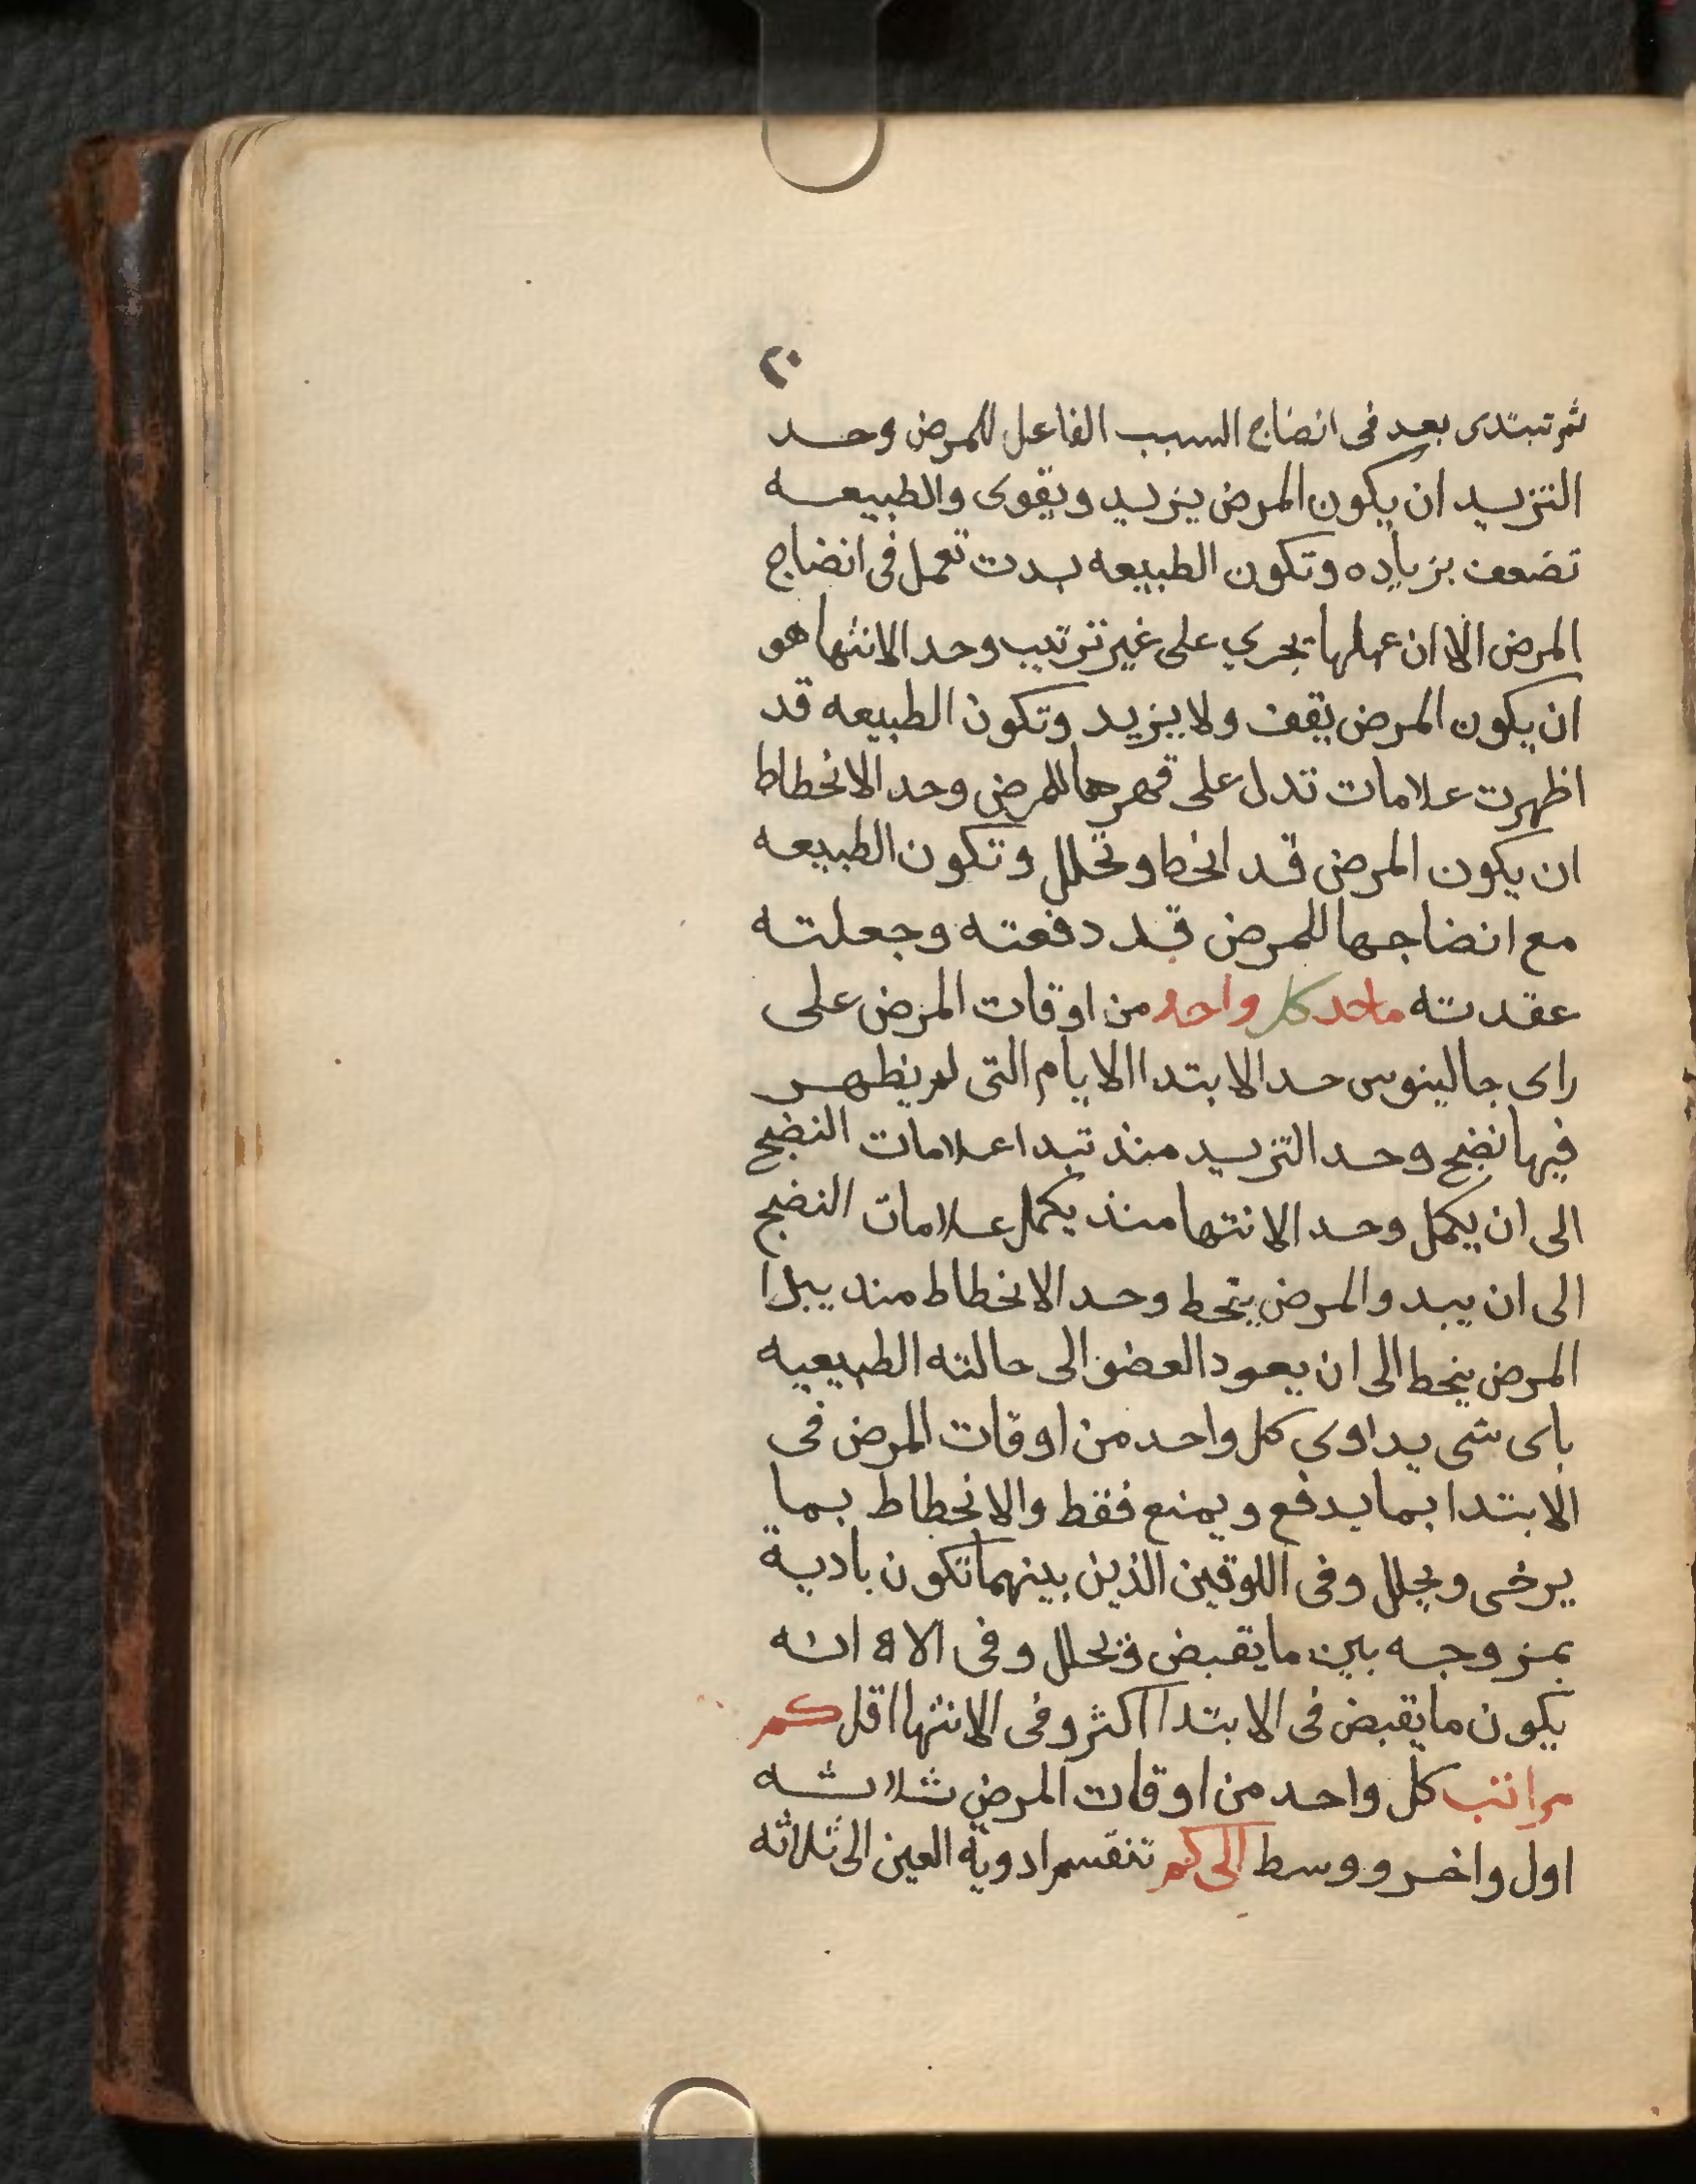 ٢٠
ثم تبتدى بعد فى انضاج السبب الفاعل للمرض وحد
التزيد ان يكون المرض يزيد ويقوى والطبيعه
تضعف بزياده وتكون الطبيعه بدت تعمل فى انضاج
المرض الا ان عملها يجري على غير ترتيب وحد الانتها هو
ان يكون المرض يقف ولا يزيد وتكون الطبيعه قد
اظهرت علامات تدل على قهرها للمرض وحد الانحطاط
ان يكون المرض قد انحط وتحلل وتكون الطبيعه
مع انضاجها للمرض قد دفعته وجعلته
عقدته ماحد كل واحد من اوقات المرض على
راى جالينوس حد الابتدا الايام التى لم يظهر
فيها نضج وحد التزيد منذ تبدا علامات النضج
الى ان يكمل وحد الانتها منذ يكمل علامات النضج
الى ان يبدو المرض ينحط وحد الانحطاط منذ يبدا
المرض ينحط الى ان يعود العضو الى حالته الطبيعيه
باى شى يداوى كل واحد من اوقات المرض فى
الابتدا بما يدفع ويمنع فقط والانحطاط بما
يرخى ويحلل وفى اللوقين الذين بينهما تكون بادية
بمزوجه بين ما يقبض ويحلل وفى
يكون ما يقبض فى الابتدا اكثر وفى الانتها اقل كم
مراتب كل واحد من اوقات المرض ثلاثه
اول واخر ووسط الى كم تنقسم ادوية العين الى ثلاثه